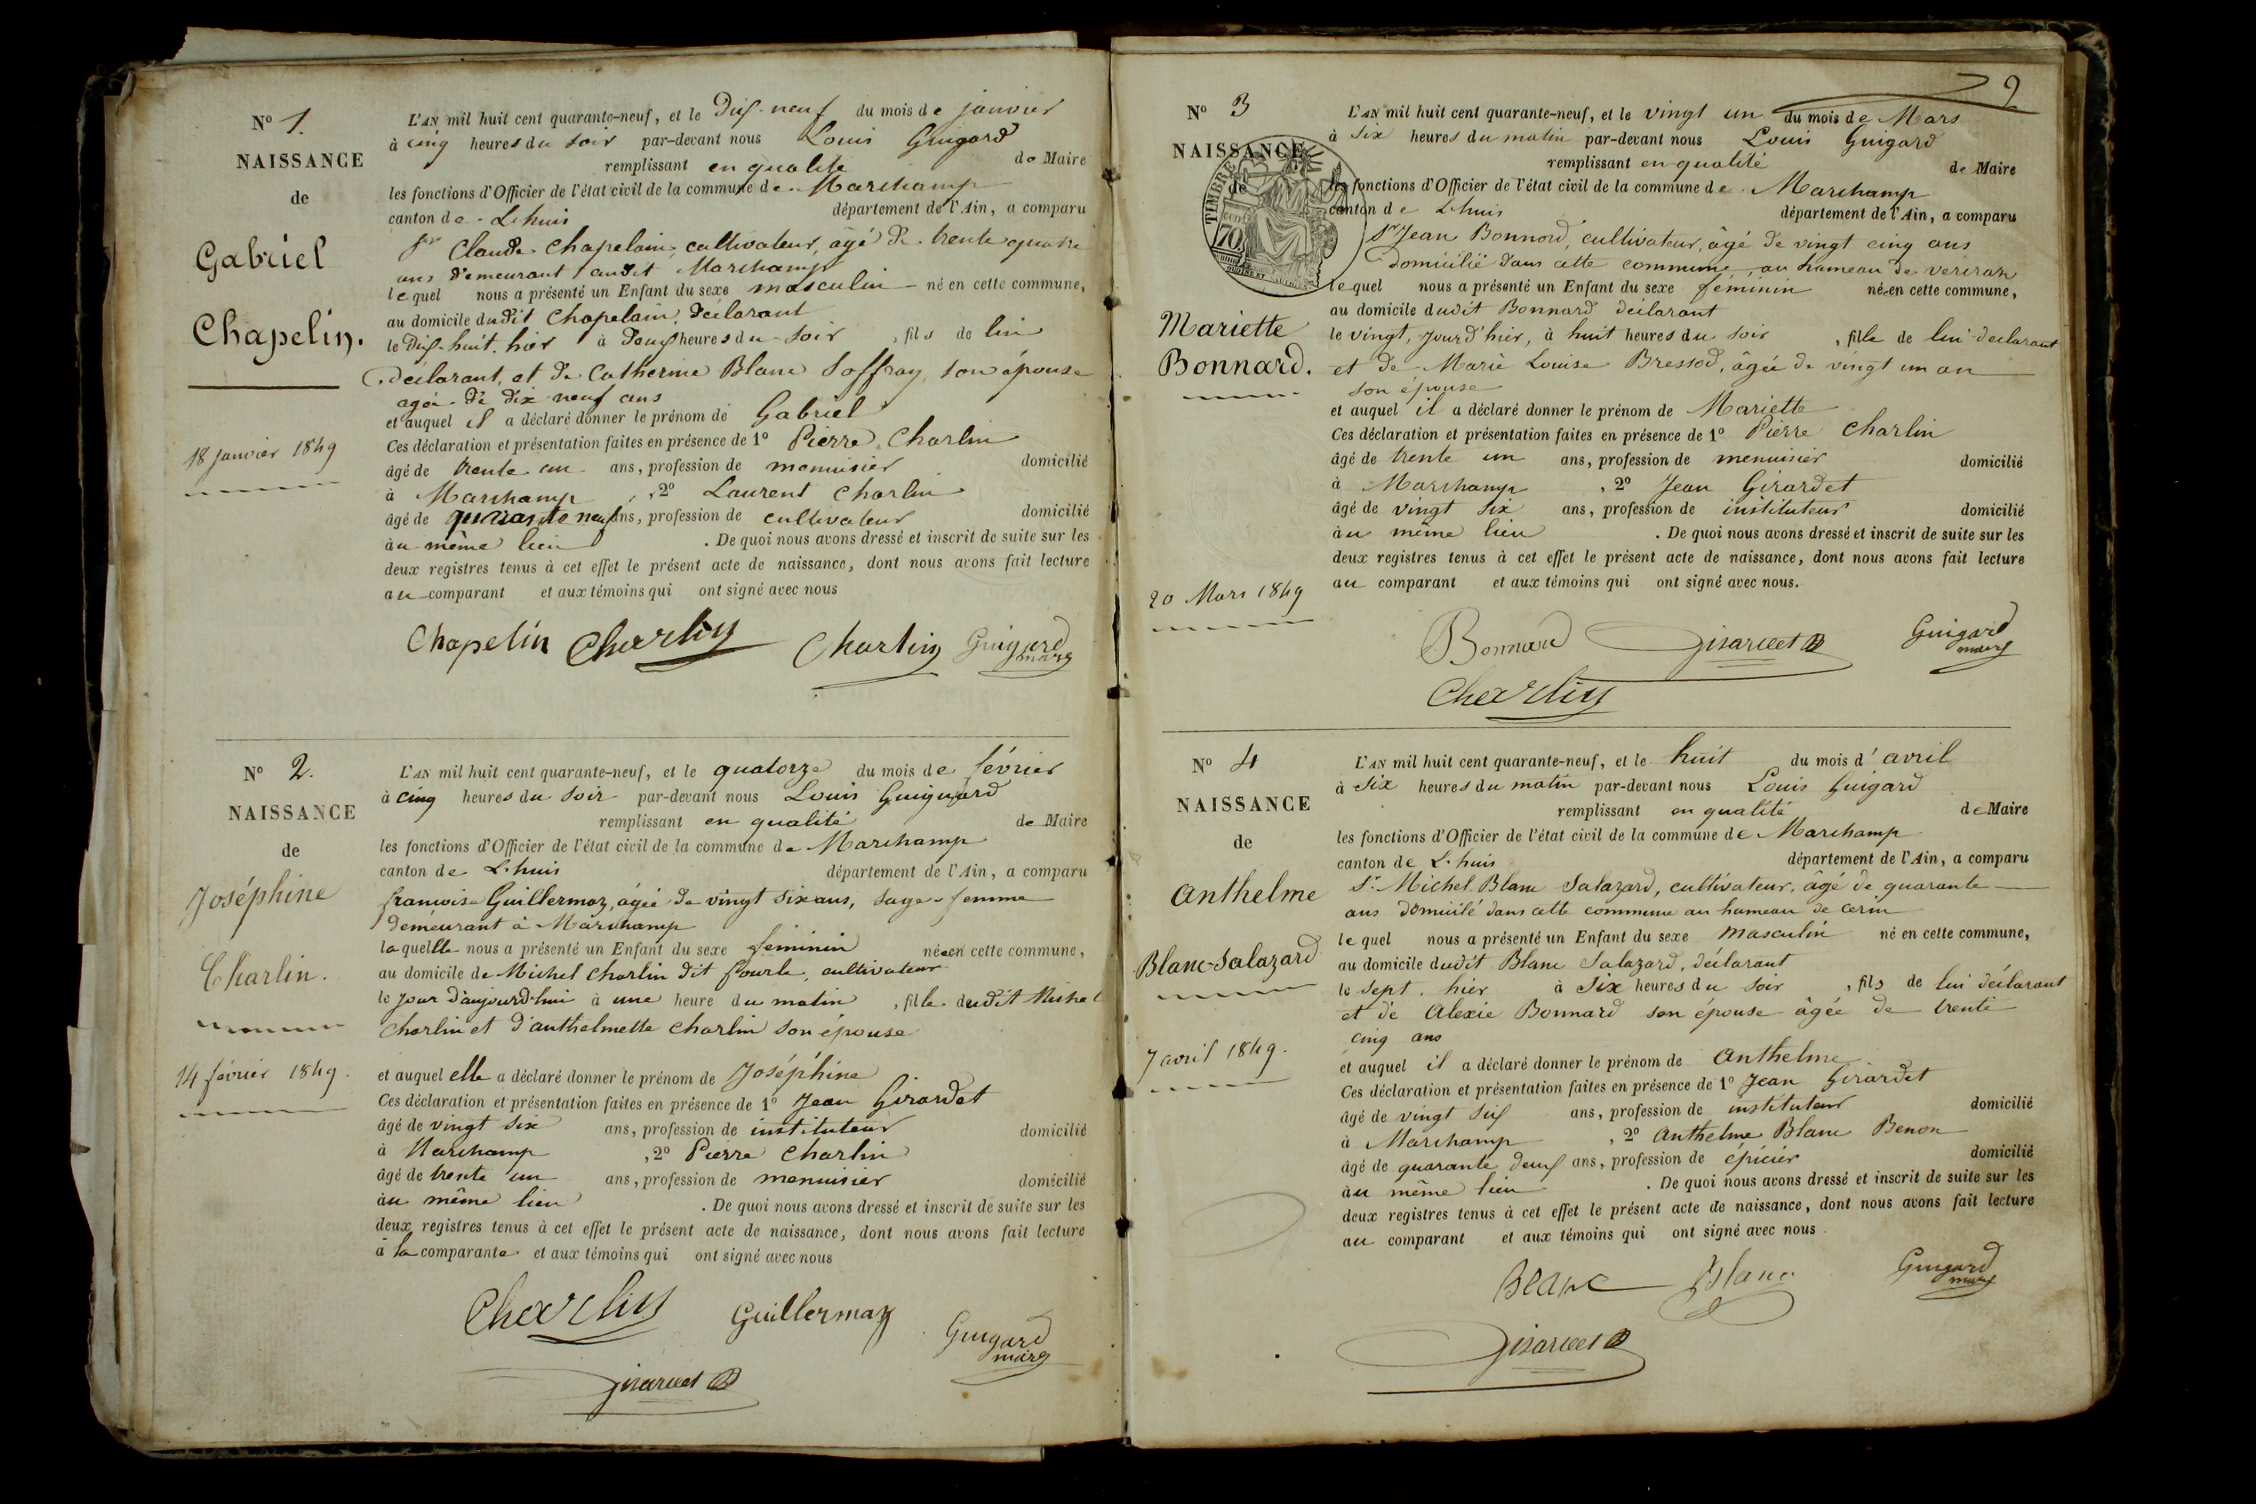 N° 1.
NAISSANCE
de
Gabriel
Chapelin.
18 janvier 1849
L'AN mil huit cent quarante-neuf, et le Dix-neuf du mois de janvier
à cinq heures du soir par-devant nous Louis Guigard
remplissant en qualité de Maire
les fonctions d'Officier de l'état civil de la commune de Marchamp
canton de Lhuis département de l'Ain, a comparu
Sr Claude Chapelain, cultivateur, âgé de trente quatre
ans demeurant audit Marchamp
lequel nous a présenté un Enfant du sexe masculin né en cette commune,
au domicile dudit Chapelain, déclarant
le Dix-huit, hier à Douze heures du soir, fils de lui
déclarant, et de Catherine Blanc Soffray, son épouse
agée de dix neuf ans
et auquel il a déclaré donner le prénom de Gabriel
Ces déclaration et présentation faites en présence de 1° Pierre Charlin
âgé de trente un ans, profession de menuisier domicilié
à Marchamp, 2° Laurent Charlin
âgé de quarante neuf ans, profession de cultivateur domicilié
au même lieu. De quoi nous avons dressé et inscrit de suite sur les
deux registres tenus à cet effet le présent acte de naissance, dont nous avons fait lecture
au comparant et aux témoins qui ont signé avec nous
Chapelin Charlin Charlin Guigard
maire
N° 2.
NAISSANCE
de
Joséphine
Charlin.
14 février 1849.
L'AN mil huit cent quarante-neuf, et le quatorze du mois de février
à cinq heures du soir par-devant nous Louis Guiguard
remplissant en qualité de Maire
les fonctions d'Officier de l'état civil de la commune de Marchamp
canton de Lhuis département de l'Ain, a comparu
francoise Guillermoz, âgée de vingt six ans, sage-femme
demeurant à Marchamp
laquelle nous a présenté un Enfant du sexe féminin née en cette commune,
au domicile de Michel Charlin dit fourle, cultivateur
le jour d'aujourd'hui à une heure du matin, fille dudit Michel
Charlin et d'anthelmette Charlin son épouse
et auquel elle a déclaré donner le prénom de Joséphine
Ces déclaration et présentation faites en présence de 1° Jean Girardet
âgé de vingt six ans, profession de instituteur domicilié
à Marchamp, 2° Pierre Charlin
âgé de trente un ans, profession de menuisier domicilié
au même lieu. De quoi nous avons dressé et inscrit de suite sur les
deux registres tenus à cet effet le présent acte de naissance, dont nous avons fait lecture
à la comparante et aux témoins qui ont signé avec nous
Charlin Guillermaz Guigard
maire
Girardet
2
N° 3
NAISSANCE
de
TIMBRE
70
Mariette
Bonnard.
20 Mars 1849
L'AN mil huit cent quarante-neuf, et le vingt un du mois de Mars
à six heures du matin par-devant nous Louis Guigard
remplissant en qualité de Maire
les fonctions d'Officier de l'état civil de la commune de Marchamp
canton de Lhuis département de l'Ain, a comparu
Sr Jean Bonnard, cultivateur, âgé de vingt cinq ans
domicilié dans cette commune, au hameau de
lequel nous a présenté un Enfant du sexe féminin née en cette commune,
au domicile dudit Bonnard déclarant
le vingt, jour d'hier, à huit heures du soir, fille de lui déclarant
et de Marie Louise Bressod, âgée de vingt un an
son épouse
et auquel il a déclaré donner le prénom de Mariette
Ces déclaration et présentation faites en présence de 1° Pierre Charlin
âgé de trente un ans, profession de menuisier domicilié
à Marchamp, 2° Jean Girardet
âgé de vingt six ans, profession de instituteur domicilié
au même lieu. De quoi nous avons dressé et inscrit de suite sur les
deux registres tenus à cet effet le présent acte de naissance, dont nous avons fait lecture
au comparant et aux témoins qui ont signé avec nous.
Bonnard Girardet Guigard
maire
Charlin
N° 4
NAISSANCE
de
Anthelme
Blanc-Salazard
7 avril 1849.
L'AN mil huit cent quarante-neuf, et le huit du mois d'avril
à six heures du matin par-devant nous Louis Guigard
remplissant en qualité de Maire
les fonctions d'Officier de l'état civil de la commune de Marchamp
canton de Lhuis département de l'Ain, a comparu
Sr Michel Blanc Salazard, cultivateur, âgé de quarante
ans domicilé dans cette commune au hameau de cerin
lequel nous a présenté un Enfant du sexe masculin né en cette commune,
au domicile dudit Blanc Salazard, déclarant
le sept, hier à six heures du soir, fils de lui déclarant
et de Alexie Bonnard son épouse âgée de trente
cinq ans
et auquel il a déclaré donner le prénom de Anthelme
Ces déclaration et présentation faites en présence de 1° Jean Girardet
âgé de vingt six ans, profession de instituteur domicilié
à Marchamp, 2° Anthelme Blanc Benon
âgé de quarante deux ans, profession de épicier domicilié
au même lieu. De quoi nous avons dressé et inscrit de suite sur les
deux registres tenus à cet effet le présent acte de naissance, dont nous avons fait lecture
au comparant et aux témoins qui ont signé avec nous.
Blanc Blanc Guigard
maire
Girardet